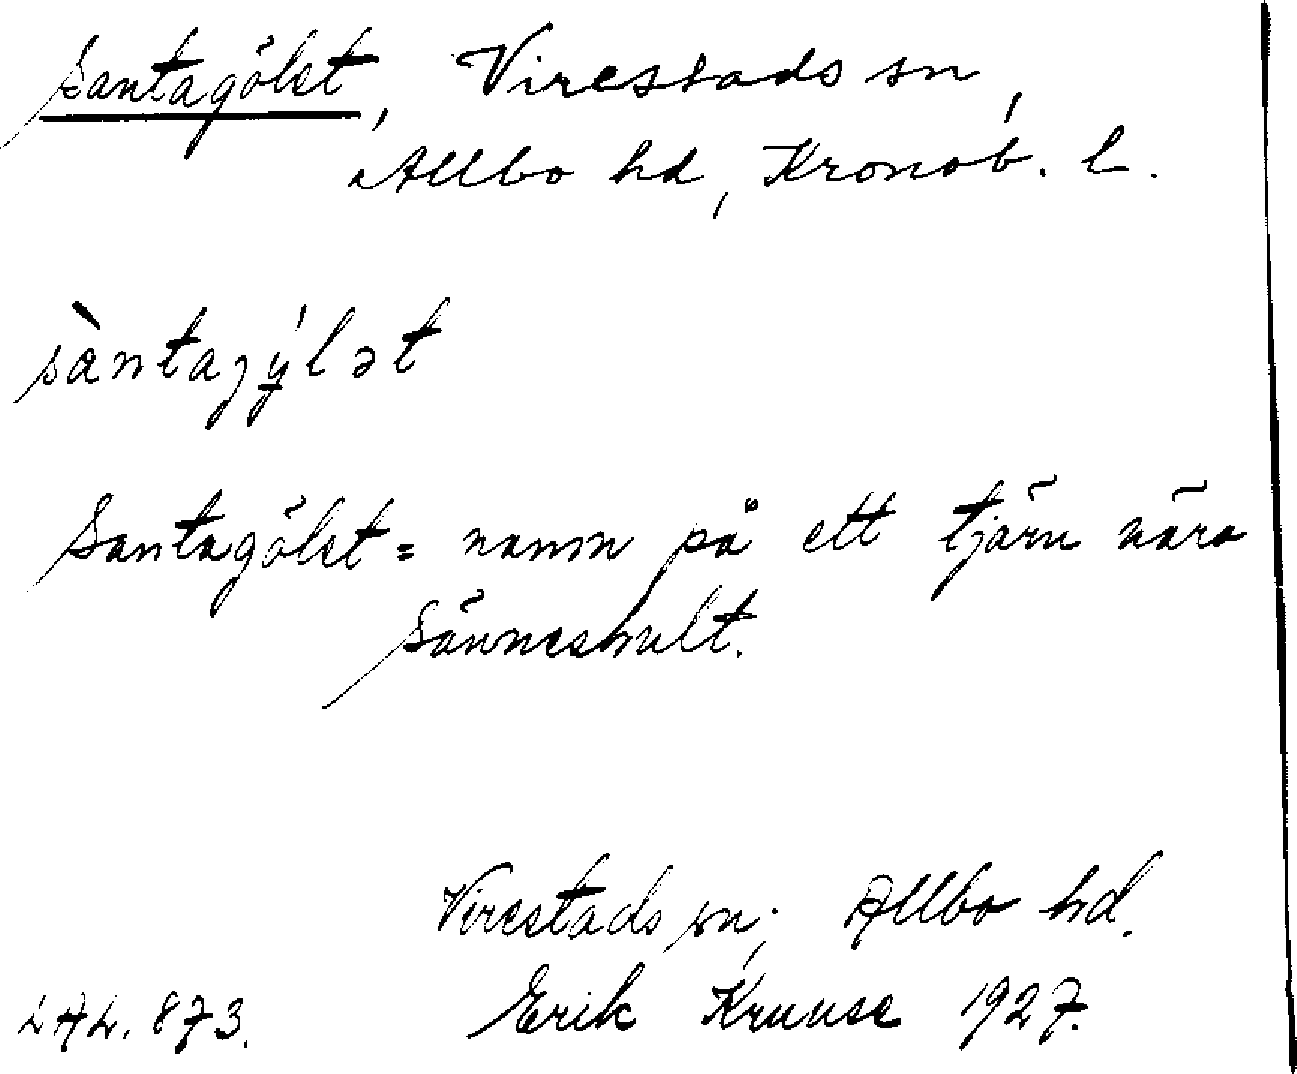 Santagölet, Virestads sn,
Allbo hd, Kronob. l.
sàntaȷýlət
Santagölet = namn på ett tjärn nära
Sånneshult.
Virestads sn; Allbo hd.
Erik Kruuse 1927.
LAL. 873.